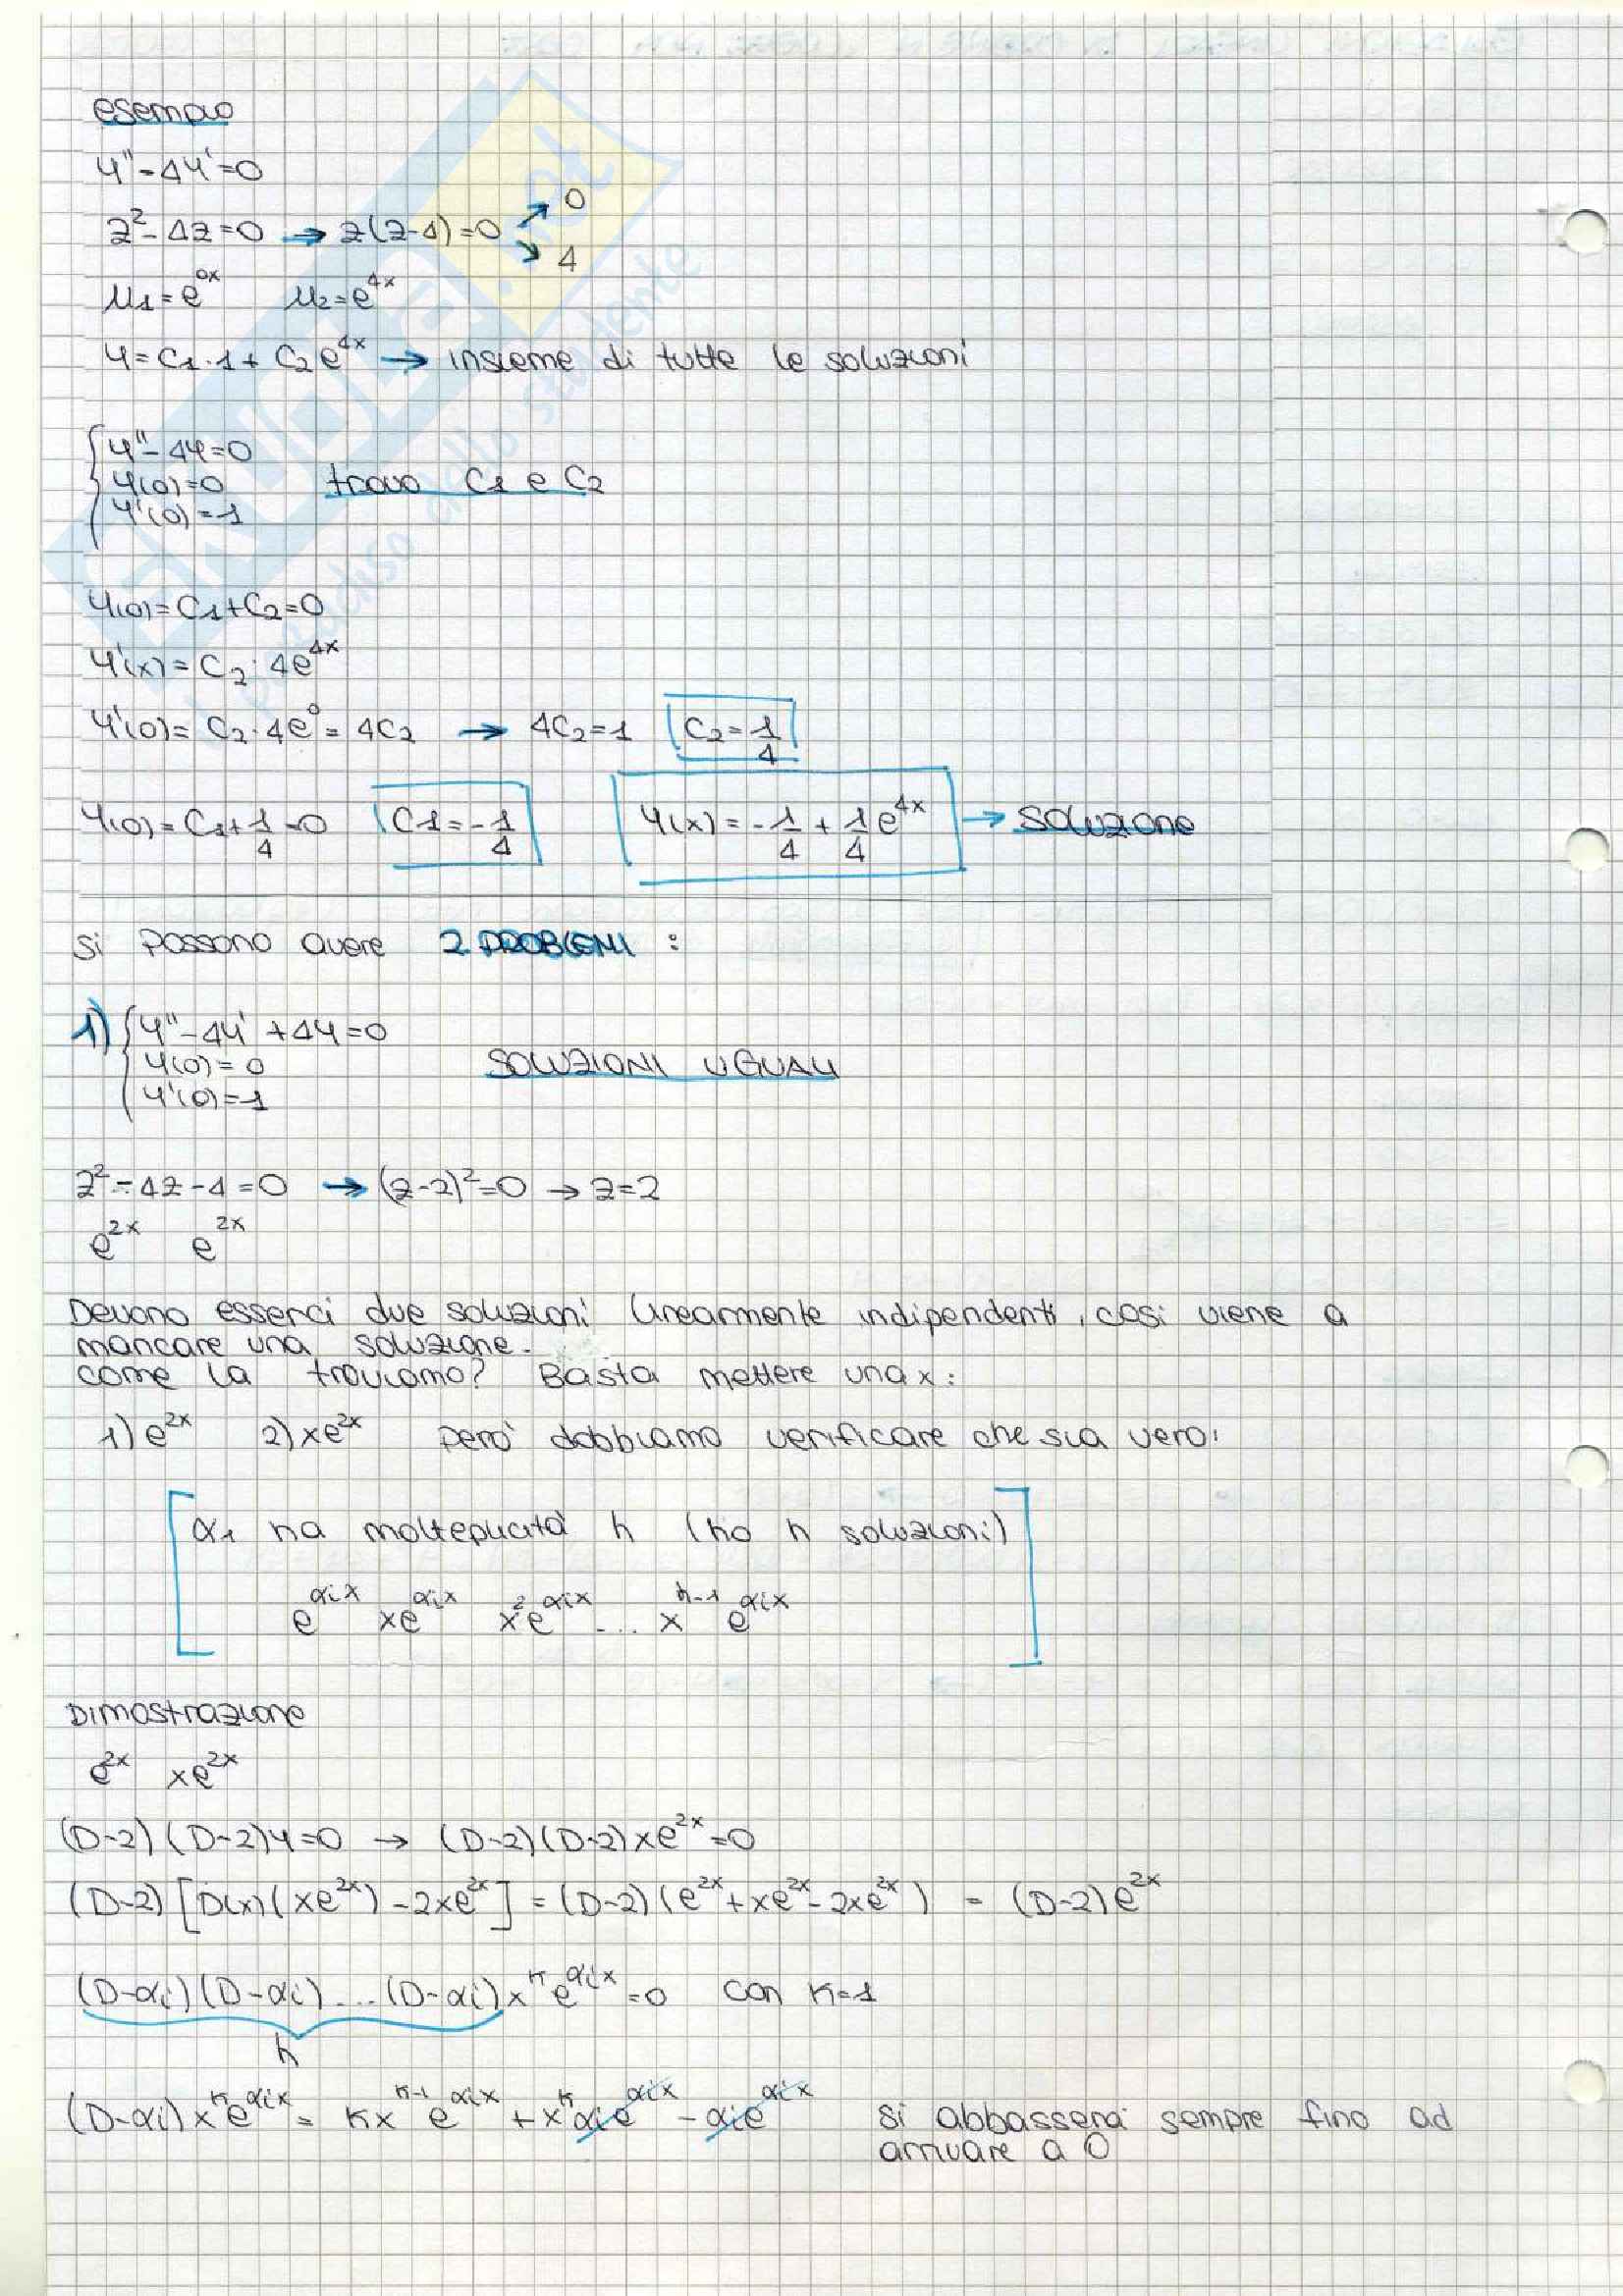 esempio
y'' - 4y' = 0
z² - 4z = 0 → z(z-4) = 0 ↗ 0 ↘ 4
μ1 = e^0x μ2 = e^4x
y = C1·1 + C2 e^4x → insieme di tutte le soluzioni
{ y'' - 4y = 0
y(0) = 0 trovo C1 e C2
y'(0) = 1
y(0) = C1 + C2 = 0
y'(x) = C2 · 4e^4x
y'(0) = C2 · 4e^0 = 4C2 → 4C2 = 1 C2 = 1/4
y(0) = C1 + 1/4 = 0 C1 = -1/4 y(x) = -1/4 + 1/4 e^4x → SOLUZIONE
si possono avere 2 PROBLEMI :
1) { y'' - 4y' + 4y = 0
y(0) = 0 SOLUZIONI UGUALI
y'(0) = 1
z² - 4z - 4 = 0 → (z-2)² = 0 → z = 2
e^2x e^2x
Devono esserci due soluzioni linearmente indipendenti, così viene a
mancare una soluzione.
come la troviamo? Basta mettere una x :
1) e^2x 2) xe^2x però dobbiamo verificare che sia vero:
[ α1 ha molteplicità h (ho h soluzioni) ]
e^αix xe^αix x²e^αix ... x^h-1 e^αix
Dimostrazione
e^2x xe^2x
(D-2)(D-2)y = 0 → (D-2)(D-2)xe^2x = 0
(D-2)[D(x)(xe^2x) - 2xe^2x] = (D-2)(e^2x + xe^2x - 2xe^2x) = (D-2)e^2x
(D-αi)(D-αi)...(D-αi)x^k e^αix = 0 con k=1
h
(D-αi)x^k e^αix = kx^k-1 e^αix + x^k αi e^αix - αi e^αix si abbasserà sempre fino ad
arrivare a 0